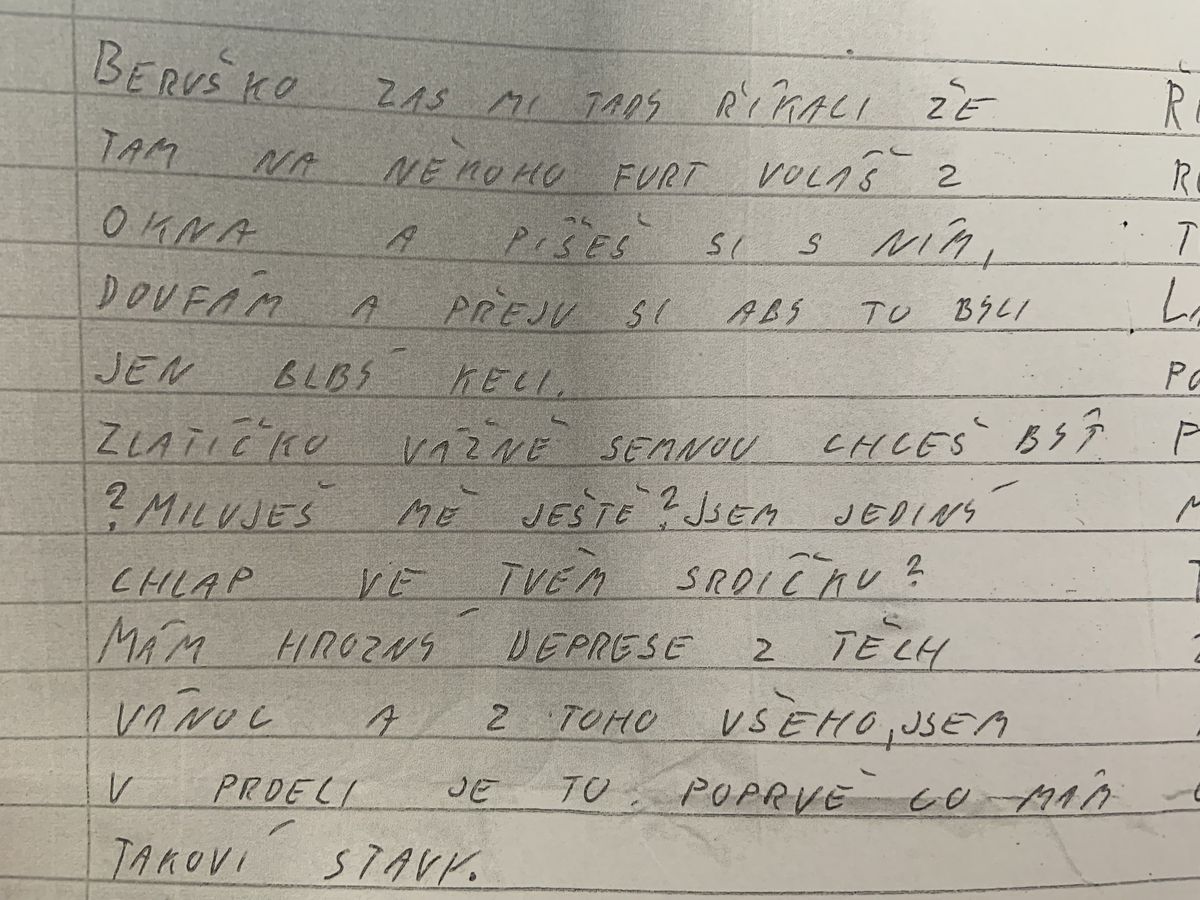 BERUŠKO ZAS MI TADY ŘÍKALI ŽE
TAM NA NĚKOHO FURT VOLÁŠ Z
OKNA A PÍŠEŠ SI S NÍM,
DOUFÁM A PŘEJU SI ABY TO BYLI
JEN BLBÝ KECI.
ZLATÍČKO VÁŽNĚ SEMNOU CHCEŠ BÝT
? MILUJEŠ MĚ JEŠTĚ? JSEM JEDINÝ
CHLAP VE TVÉM SRDÍČKU?
MÁM HROZNÝ DEPRESE Z TĚCH
VÁNOC A Z TOHO VŠEHO, JSEM
V PRDELI JE TO. POPRVÉ CO MÁM
TAKOVÍ STAVY.